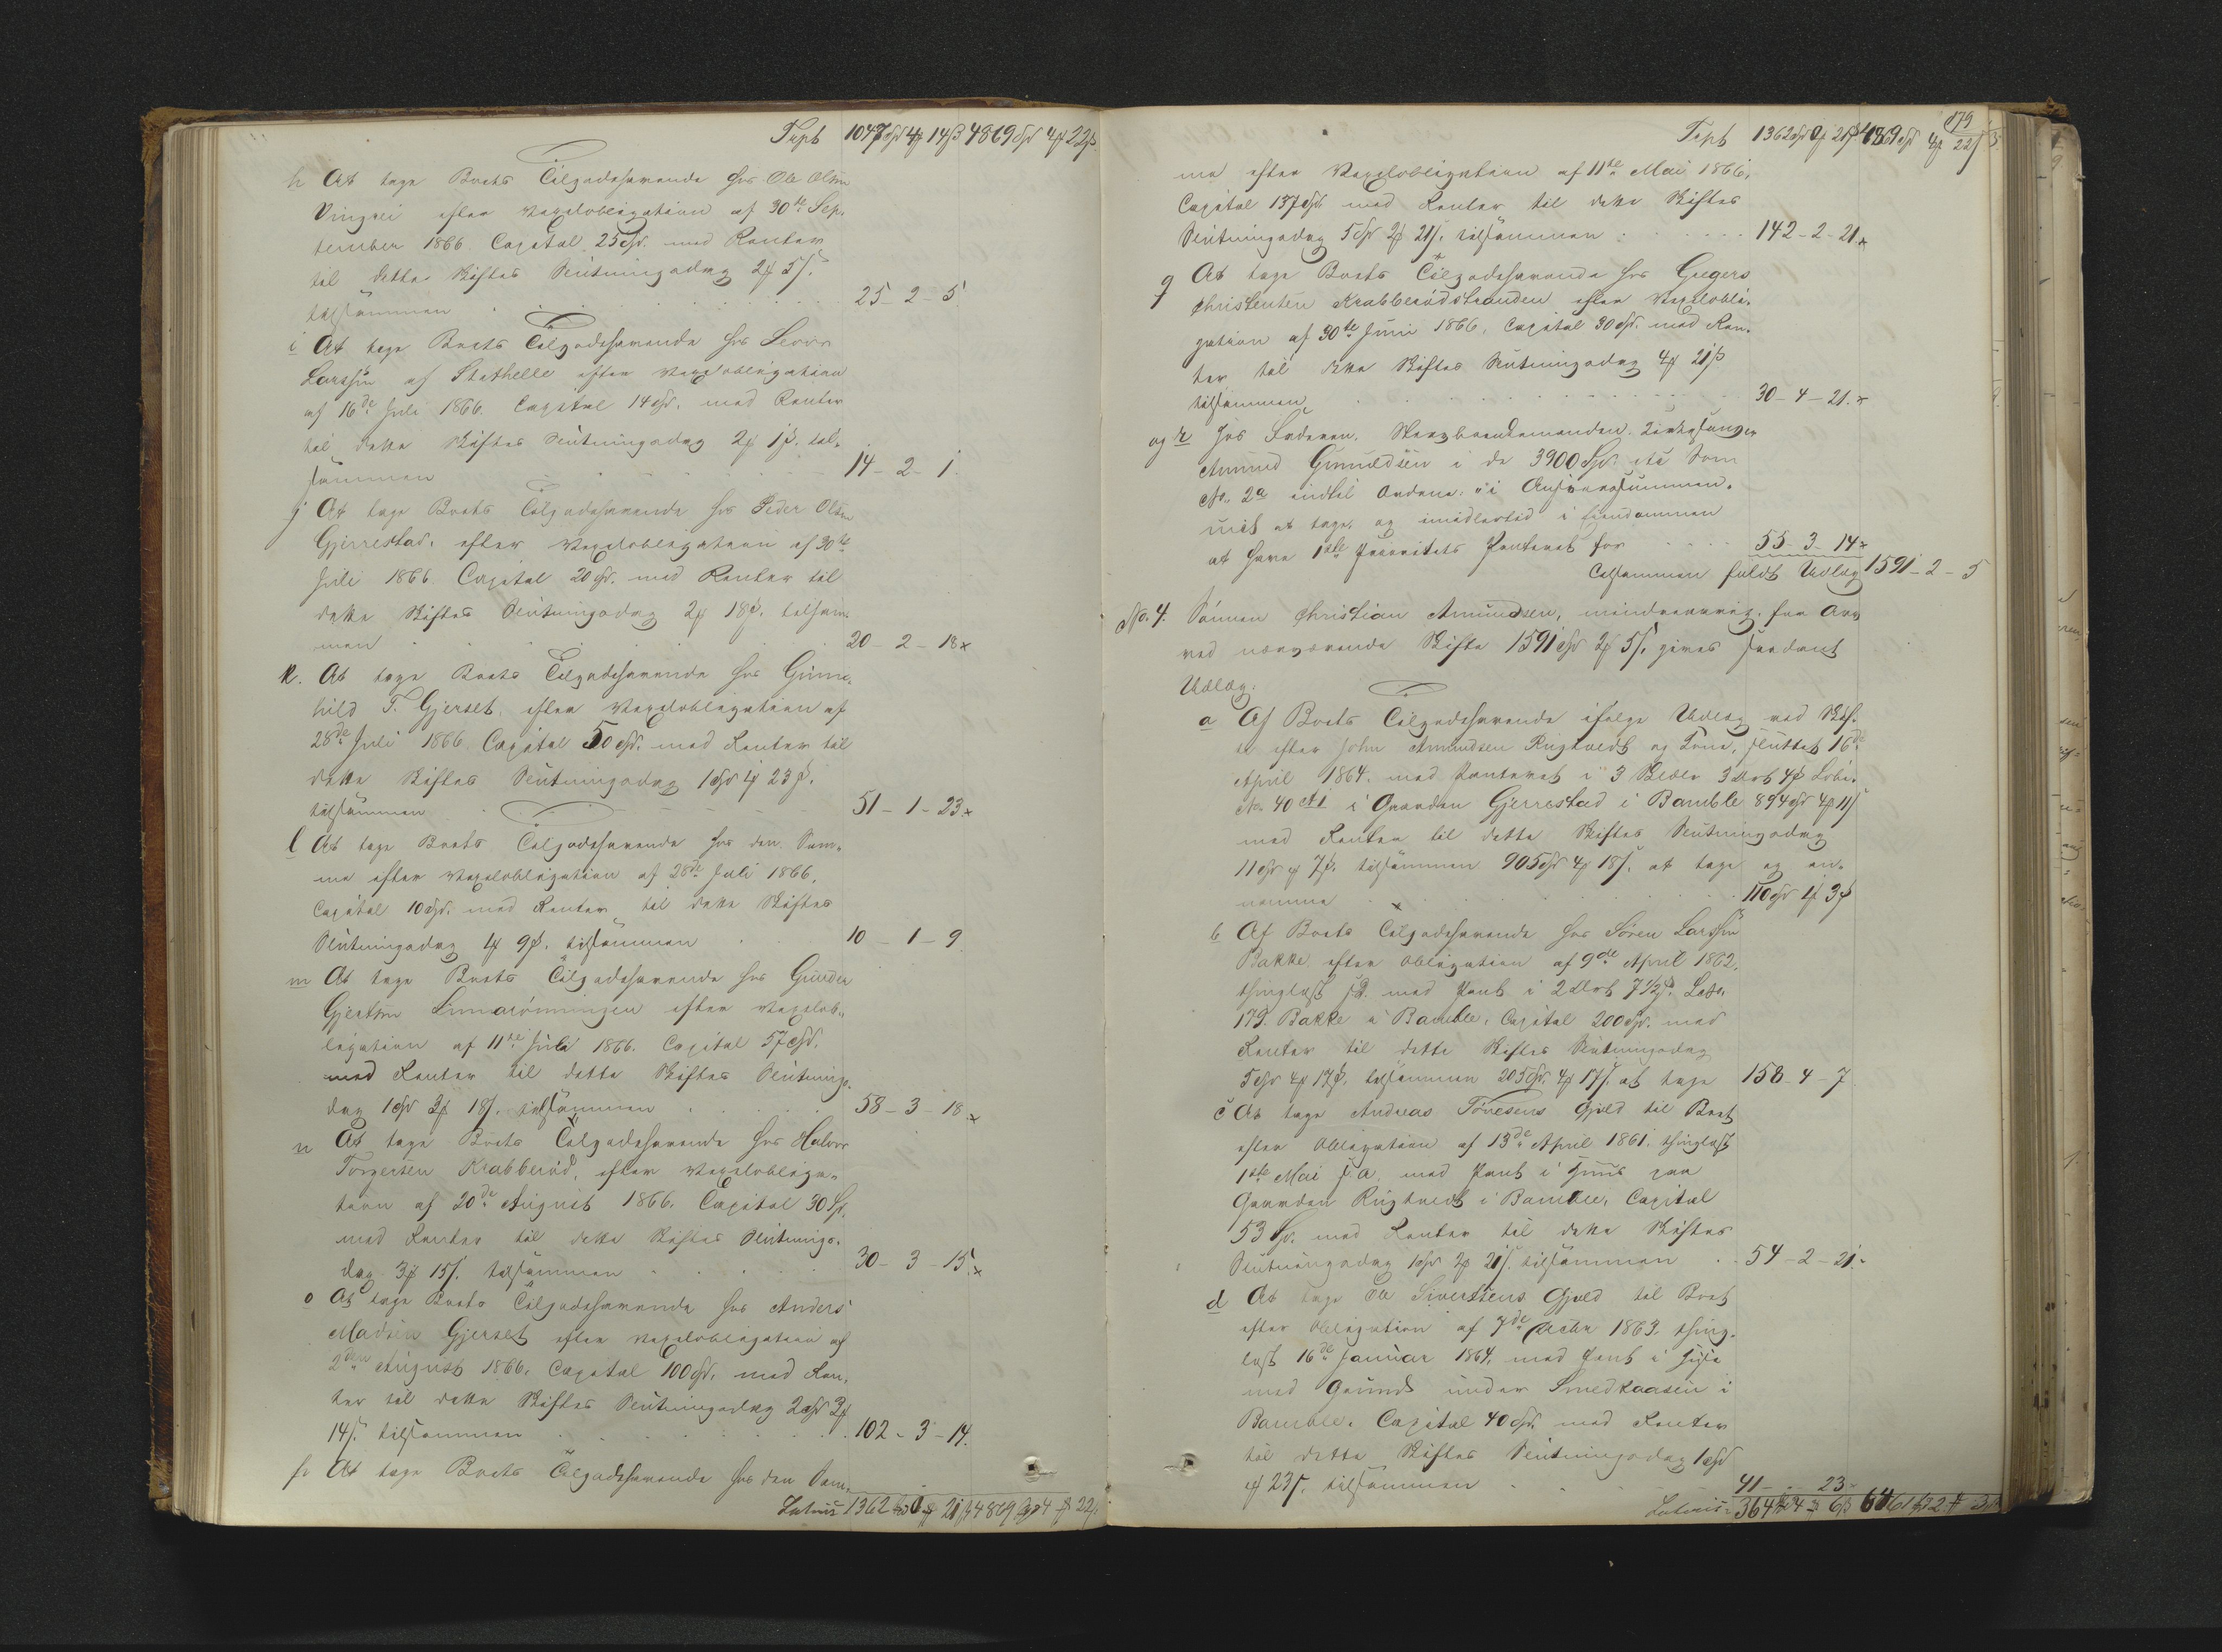 Trpt 1047 Spd 4 # 14 ß 4869 Spd 4 # 22 ß
h At tage Boets Tilgodehavende hos Ole Olsen
Vingrei efter Vexelobligation af 30te Sep-
tember 1866. Capital 25 Spd. med Renter
til dette Skiftes Slutningsdag 2 # 5 ß.
tilsammen 25 - 2 - 5
i At tage Boets Tilgodehavende hos
Larssen af Stathelle efter Vexelobligation
af 16de Juli 1866. Capital 14 Spd. med Renter
til dette Skiftes Slutningsdag 2 # 1 ß. til-
sammen 14 - 2 - 1
j At tage Boets Tilgodehavende hos Peder Olsen
Gjerrestad, efter Vexelobligation af 30te
Juli 1866. Capital 20 Spd. med Renter til
dette Skiftes Slutningsdag 2 # 18 ß. tilsam-
men 20 - 2 - 18 x
k. At tage Boets Tilgodehavende hos Gunne-
hild T. Gjerset, efter Vexelobligation af
28de Juli 1866. Capital 50 Spd. med Renter til
dette Skiftes Slutningsdag 1 Spd 1 # 23 ß.
tilsammen 51 - 1 - 23 x
l At tage Boets Tilgodehavende hos den Sam-
me efter Vexelobligation af 28de Juli 1866.
Capital 10 Spd. med Renter til dette Skiftes
Slutningsdag 1 # 9 ß. tilsammen 10 - 1 - 9
m At tage Boets Tilgodehavende hos
Gjertsen efter Vexelob-
ligation af 11te Juli 1866. Capital 57 Spd.
med Renter til dette Skiftes Slutnings-
dag 1 Spd 3 # 18 ß. tilsammen 58 - 3 - 18 x
n At tage Boets Tilgodehavende hos Halvor
Torgersen Krabberød, efter Vexelobliga-
tion af 20de August 1866. Capital 30 Sp.
med Renter til dette Skiftes Slutnings-
dag 3 # 15 ß. tilsammen 30 - 3 - 15 x
o At tage Boets Tilgodehavende hos Anders
Madsen Gjerset efter Vexelobligation af
2den August 1866. Capital 100 Spd. med Ren-
ter til dette Skiftes Slutningsdag 2 Spd 3 #
14 ß. tilsammen 102 - 3 - 14.
p At tage Boets Tilgodehavende hos den Sam-
Latus 1362 Spd 0 # 21 ß 4869 Spd 4 # 22 ß
179
Trpt 1362 Spd 0 # 21 ß 4869 Spd 4 # 22 ß
me efter Vexelobligation af 11te Mai 1866.
Capital 137 Spd. med Renter til dette Skiftes
Slutningsdag 5 Spd 2 # 21 ß. tilsammen 142 - 2 - 21 x
q At tage Boets Tilgodehavende hos Gregers
Christensen Krabberødstranden efter Vexelobli-
gation af 30te Juni 1866. Capital 30 Spd. med Ren-
ter til dette Skiftes Slutningsdag 4 # 21 ß
tilsammen 30 - 4 - 21. x
og r hos Faderen, Kirkesanger
Amund i de 3900 Spd. som
No. 2a indtil Ordene: "i
at tage, og imidlertid i Eiendommen
at have 1ste Prioritets Panteret for 55 - 3 - 14 x
Tilsammen fuldt Udlæg 1591 - 2 - 5
No. 4. Sønnen Christian Amundsen, mindreaarig, faar Arv
ved nærværende Skifte 1591 Spd 2 # 5 ß. gives saadant
Udlæg:
a Af Boets Tilgodehavende ifølge Udlæg ved Skif-
te efter John Amundsen Rugtvedt og Kone, sluttet 16de
April 1864. med Panteret i 3 Skilds 3 Ort 4 ß Løbe-
No 40 A1 i Gaarden Gjerrestad i Bamble 894 Spd 4 # 11 ß
med Renter til dette Skiftes Slutningsdag
11 Spd # 7 ß. tilsammen 905 Spd 4 # 18 ß. at tage og an-
namme x 110 Spd 1 # 3 ß
b Af Boets Tilgodehavende hos Søren Larssen
Bakke efter Obligation af 9de April 1862,
thinglæst s. D. med Pant i 2 Ort 7 1/2 ß. Løbe.
179. Bakke i Bamble. Capital 200 Spd. med
Renter til dette Skiftes Slutningsdag
5 Spd 4 # 17 ß. tilsammen 205 Spd. 4 # 17 ß. at tage 158 - 4 - 7
c At tage Andreas Tovesens Gjæld til Boet
efter Obligation af 13de April 1861. thinglæst
1ste Mai s. A. med Pant i Huus paa
Gaarden Rugtvedt i Bamble, Capital
53 Sp. med Renter til dette Skiftes
Slutningsdag 1 Spd 2 # 21 ß. tilsammen 54 - 2 - 21.
d At tage Ole Sivertsens Gjæld til Boet
efter Obligation af 7de 1863. thing-
læst 16de Januar 1864, med Pant i Huse
med Grund under Smedkaasen i
Bamble. Capital 40 Spd. med Renter
til dette Skiftes Slutningsdag 1 Spd
# 23 ß. tilsammen 41 - - 23
Latus 364 Spd 4 # 6 ß 6461 Spd 2 # 3 ß